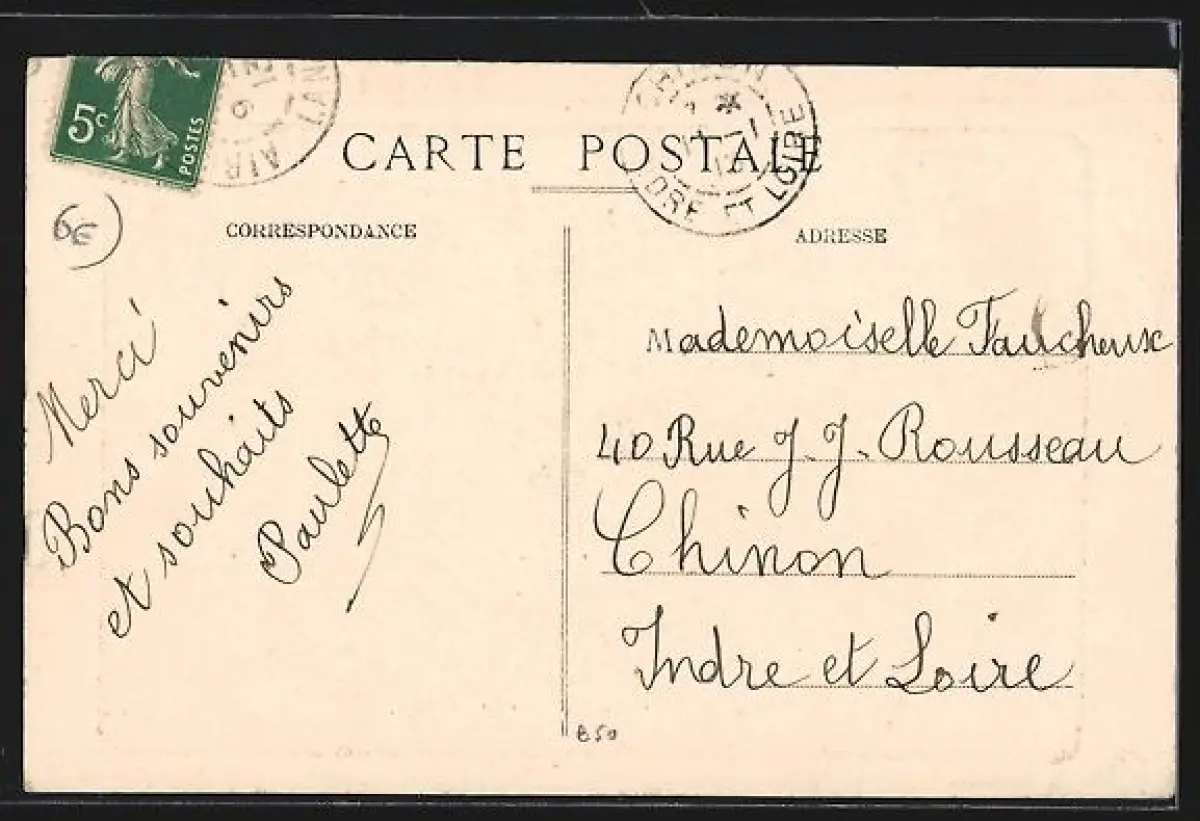 5c
POSTES
CARTE POSTALE
CHINON
INDRE ET LOIRE
6€
CORRESPONDANCE
ADRESSE
Merci
Bons souvenirs
et souhaits
Paulette
Mademoiselle Faucheux
40 Rue J. J. Rousseau
Chinon
Indre et Loire